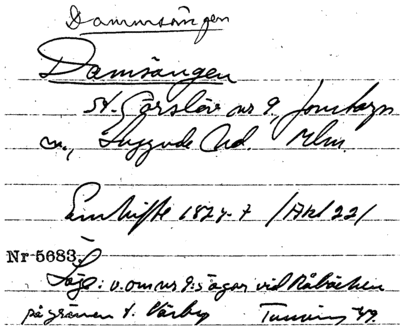 Dammsängen
Damsängen
St. Görslöv nr 9, Jonstorps
sn., Luggude hd. Mlm.
Enskifte 1827-7 /Akt 22/
Nr 5683.
Läge: v. om nr 9:s ägor vid Råbäcken
på gränsen t. Väsby Tuneving 49.